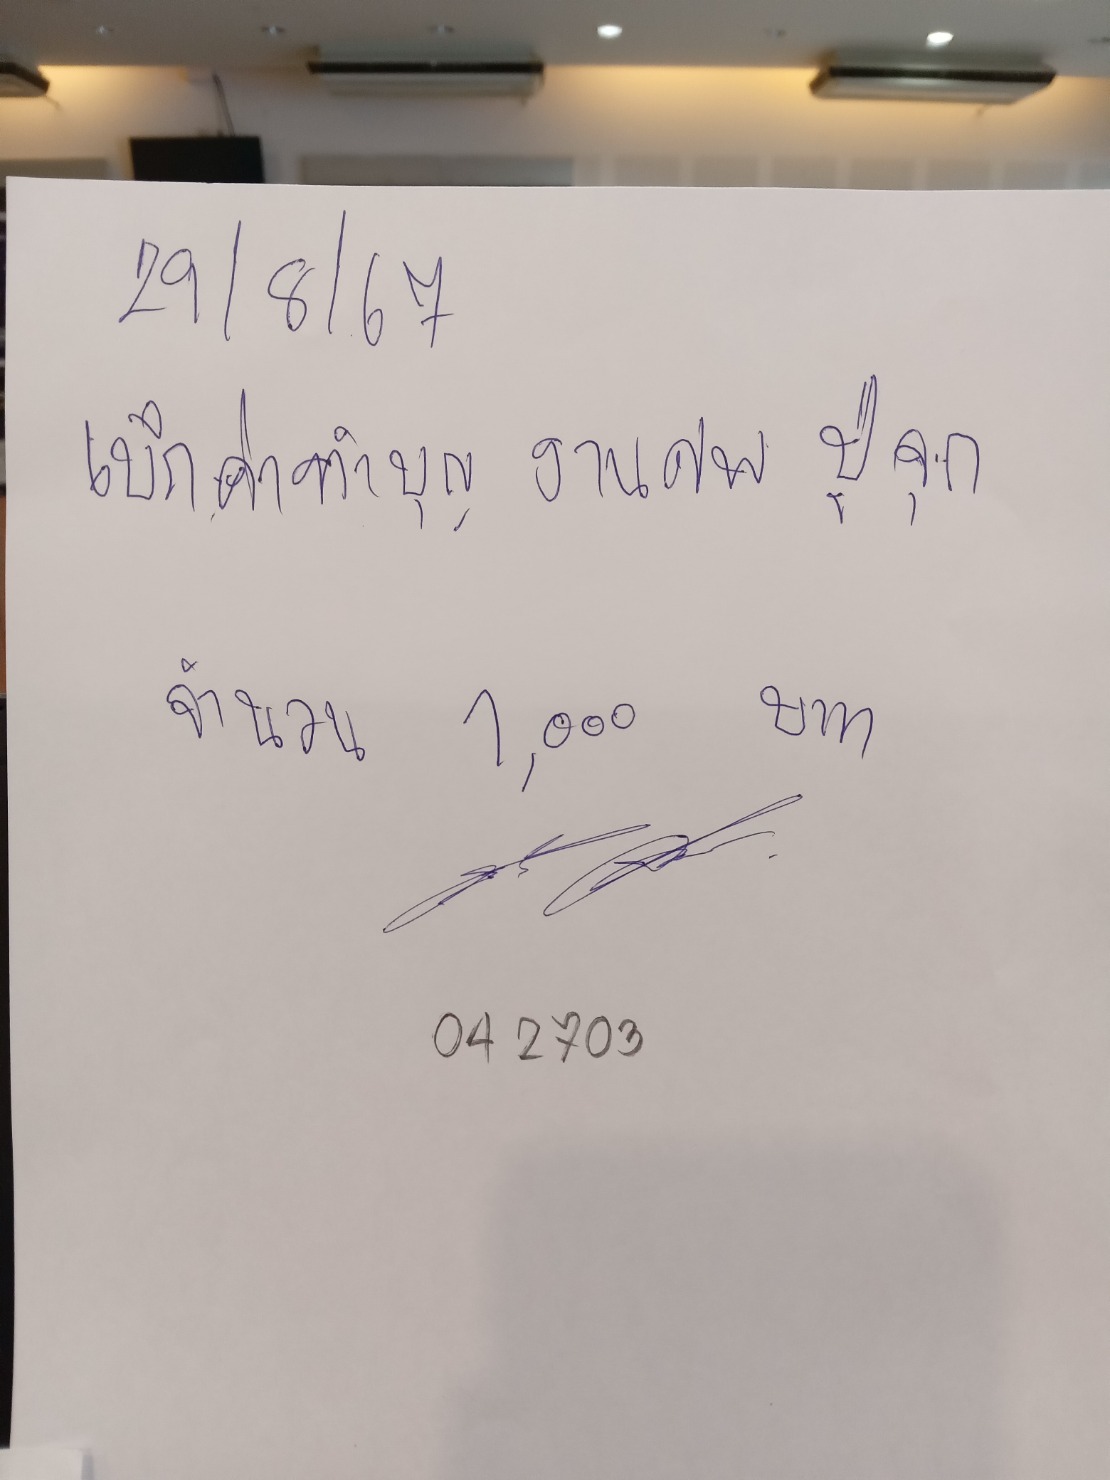 29/8/67
เบิกค่าทำบุญ งานศพ ปู่
จำนวน 1,000 บาท
042703